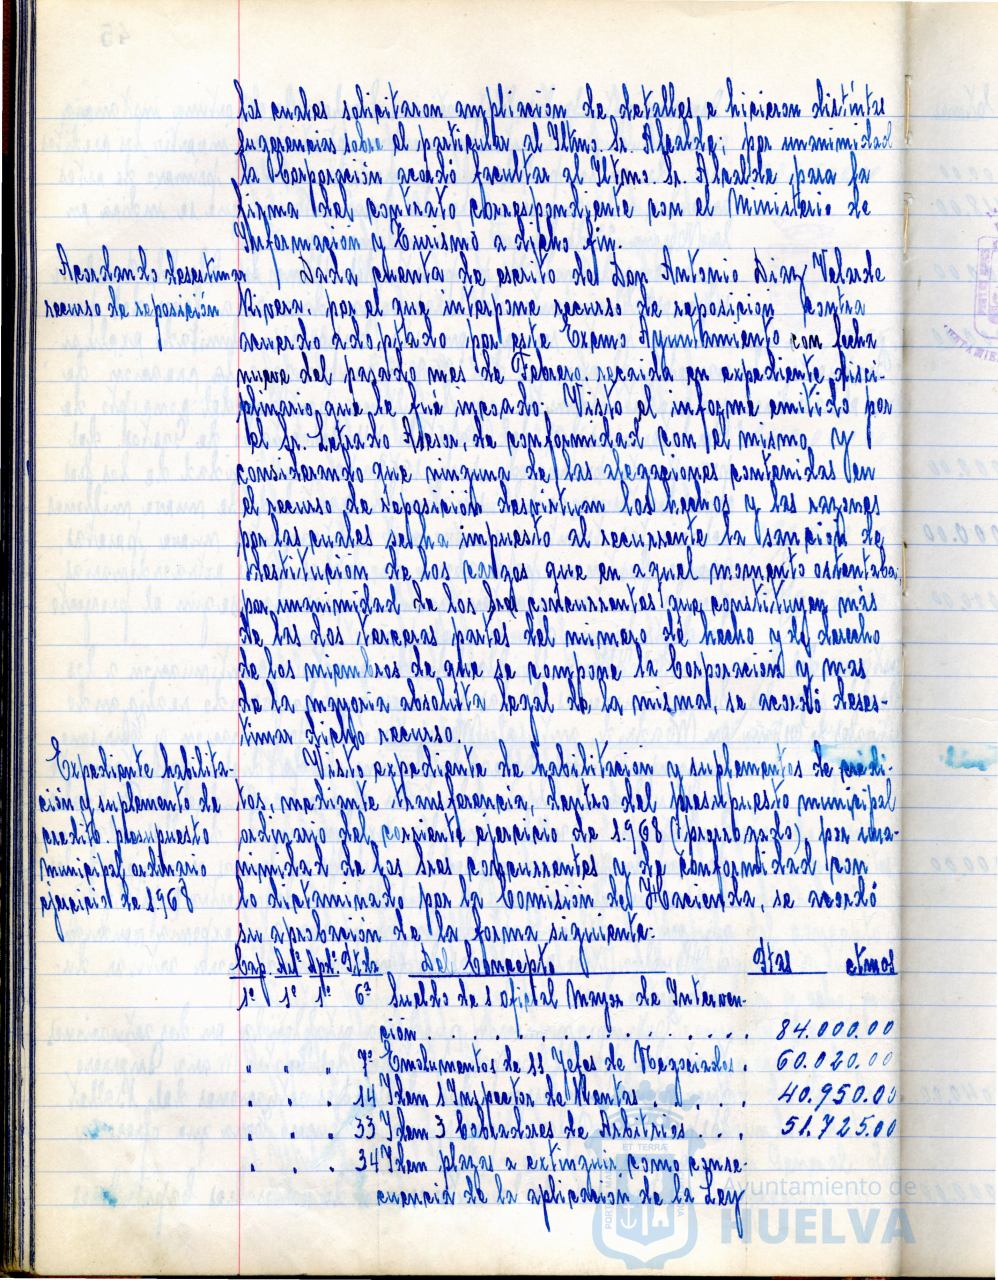 los cuales solicitaron ampliación de detalles e hicieron distintas
sugerencias sobre el particular, al Iltmo. Sr. Alcalde; por unanimidad
la Corporación acordó facultar al Iltmo. Sr. Alcalde, para la
firma del contrato correspondiente con el Ministerio de
Información y Turismo a dicho fin.
Acordando desestimar
recurso de reposición
Dada cuenta de escrito del Don Antonio Diaz Velarde
Rivera, por el que interpone recurso de reposición contra
acuerdo adoptado por este Excmo Ayuntamiento con fecha
nueve del pasado mes de Febrero, recaida en expediente disci-
plinario, que le fué incoado; Visto el informe emitido por
el Sr. Letrado Asesor, de conformidad con el mismo, y
considerando que ninguna de las alegaciones contenidas en
el recurso de reposición desvirtuan los hechos y las razones
por las cuales se ha impuesto al recurrente la sanción de
destitución de los cargos que en aquel momento ostentaba,
por unanimidad de los Sres concurrentes que constituyen más
de las dos terceras partes del número de hecho y de derecho
de los miembros de que se compone la Corporación y mas
de la mayoria absoluta legal de la misma, se acordó deses-
timar dicho recurso.
Expediente habilita-
ción y suplemento de
credito. presupuesto
municipal ordinario
ejercicio de 1968
Visto expediente de habilitación y suplementos de credi-
tos, mediante transferencia, dentro del presupuesto municipal
ordinario del corriente ejercicio de 1968 (prorrogado) por una-
nimidad de los Sres concurrentes y de conformidad con
lo dictaminado por la Comisión de Hacienda, se acordó
su aprobación de la forma siguiente:
Cap. Artº. Aptº. Ptda Del Concepto Ptas ctmos
1º 1º 1º 6ª Sueldo de 1 oficial Mayor de Interven-
ción . . . . . . . . . . . . 84.000.00
" " " 7ª Emolumentos de 11 Jefes de Negociados . 60.020.00
" " " 14 Idem 1 Inspector de Rentas . . . . 40.950.00
" " " 33 Idem 3 Cobradores de Arbitrios . . . 51.725.00
" " " 34 Idem plazas a extinguir como conse-
cuencia de la aplicación de la Ley
Ayuntamiento de
HUELVA